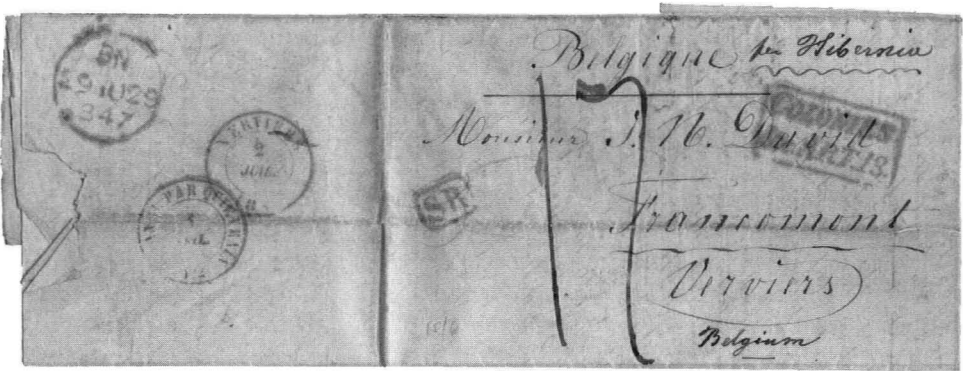 BN
29 JU 29
1847
VERVIERS
2
JUIL.
PAR QUIEVRAIN
SR
Belgique per Hibernia
COLONIES
ART. 18.
17
Monsieur J. N. David
Francomont
Verviers
Belgium